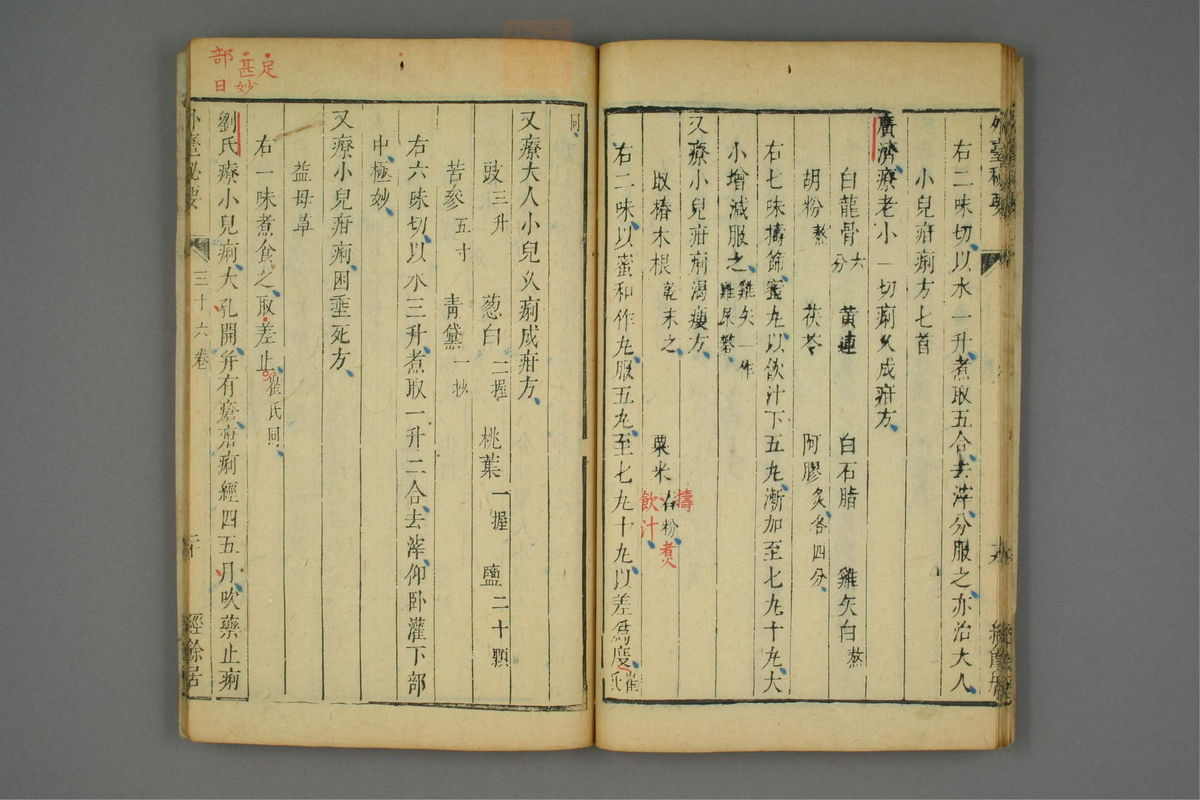 外臺秘要
右二味切以水一升煮取五合去滓分服之亦治大人
小兒疳痢方七首
廣濟療老小一切痢久成疳方
白龍骨六分 黃連 白石脂 雞矢白熬
胡粉熬 茯苓 阿膠炙各四分
右七味擣篩蜜丸以飲汁下五丸漸加至七丸十丸大
小增減服之雞矢一作雞屎礬
又療小兒疳痢渴瘦方
取椿木根乾末之 粟米 粉
擣 煮飲汁
右二味以蜜和作丸服五丸至七丸十丸以差為度崔氏
同
又療大人小兒久痢成疳方
豉三升 葱白一握 桃葉一握 鹽二十顆
苦參五寸 青黛一抄
右六味切以水三升煮取一升二合去滓仰卧灌下部
中極妙
又療小兒疳痢困垂死方
益母草
右一味煮食之取差止崔氏同
劉氏療小兒痢大孔開并有瘡疳痢經四五月吹藥止痢
外臺秘要 三十六卷 二十 經餘居
足
甚妙
部
日